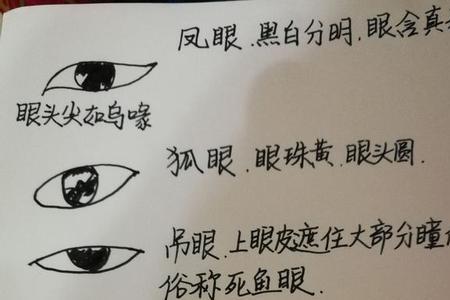 凤眼、黑白分明,眼含真
眼头尖如鸟喙
狐眼、眼珠黄、眼头圆.
吊眼、上眼皮遮住大部分瞳
俗称死鱼眼.